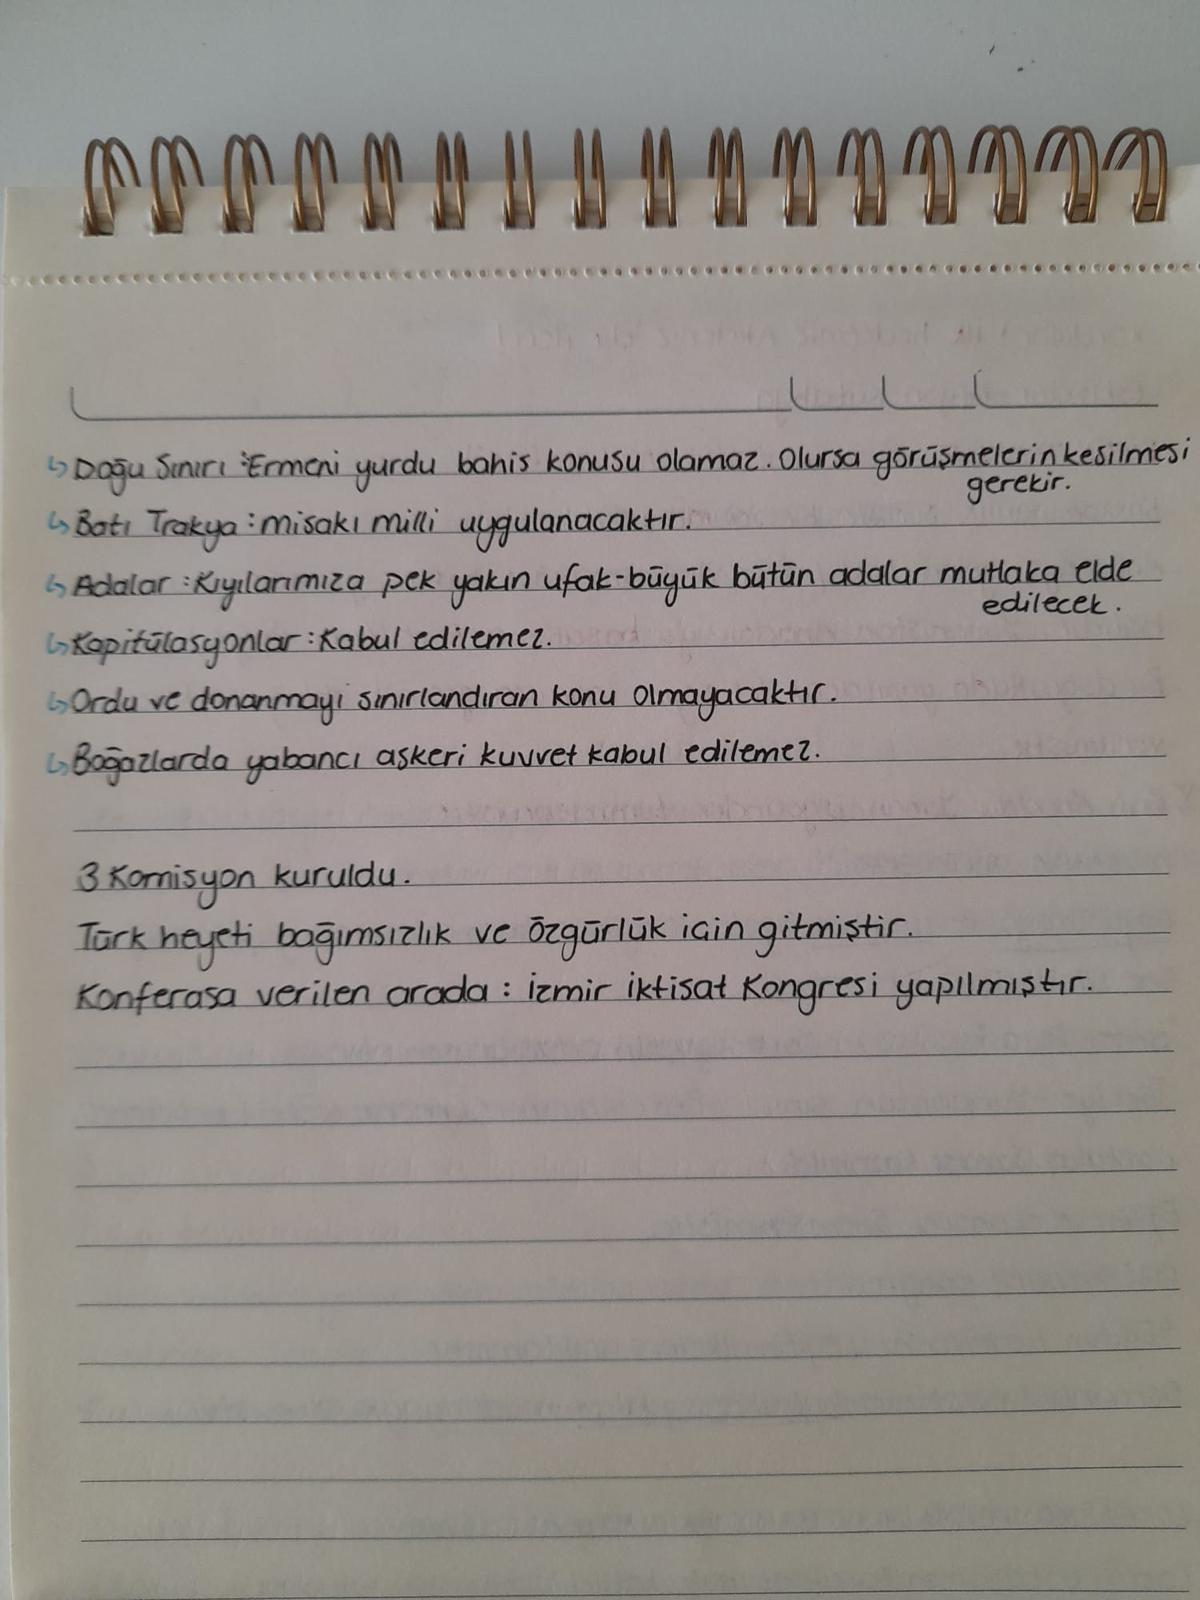 ↳ Doğu Sınırı : Ermeni yurdu bahis konusu olamaz. Olursa görüşmelerin kesilmesi
gerekir.
↳ Batı Trakya : misakı milli uygulanacaktır.
↳ Adalar : Kıyılarımıza pek yakın ufak-büyük bütün adalar mutlaka elde
edilecek.
↳ Kapitülasyonlar : Kabul edilemez.
↳ Ordu ve donanmayı sınırlandıran konu olmayacaktır.
↳ Boğazlarda yabancı askeri kuvvet kabul edilemez.
3 Komisyon kuruldu.
Türk heyeti bağımsızlık ve özgürlük icin gitmiştir.
Konferasa verilen arada : izmir iktisat Kongresi yapılmıştır.